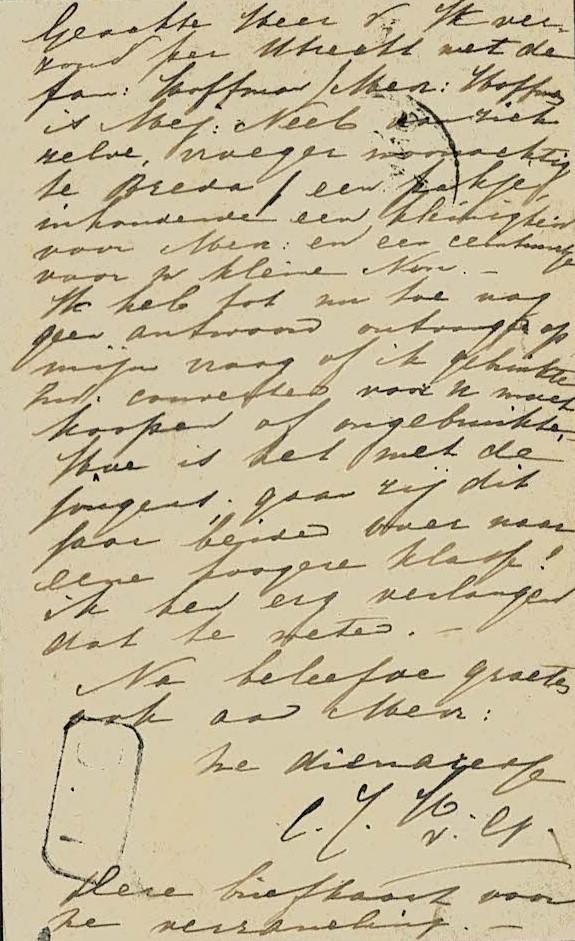 Geachte Heer v. Ik ver-
zond per Utrecht met de
fam: Hoffman / Mevr: Hoffman
is Mej: Neeb van zich
zelve, vroeger woonachtig
te Breda / een pakje,
inhoudende een kleinigheid
voor Mevr: en een
voor uw kleine Non. —
Ik heb tot nu toe nog
geen antwoord ontvangen op
mijn vraag of ik gebruikte
Ind. couverten voor U moet
koopen of ongebruikte.
Hoe is het met de
jongens, gaan zij dit
jaar beiden over naar
eene hoogere klasse?
ik ben erg verlangend
dat te weten. —
Na beleefde groeten
ook aan Mevr:
Uw dienares
C. J. H.
v. G.
Deze briefkaart voor
uw verzameling. —